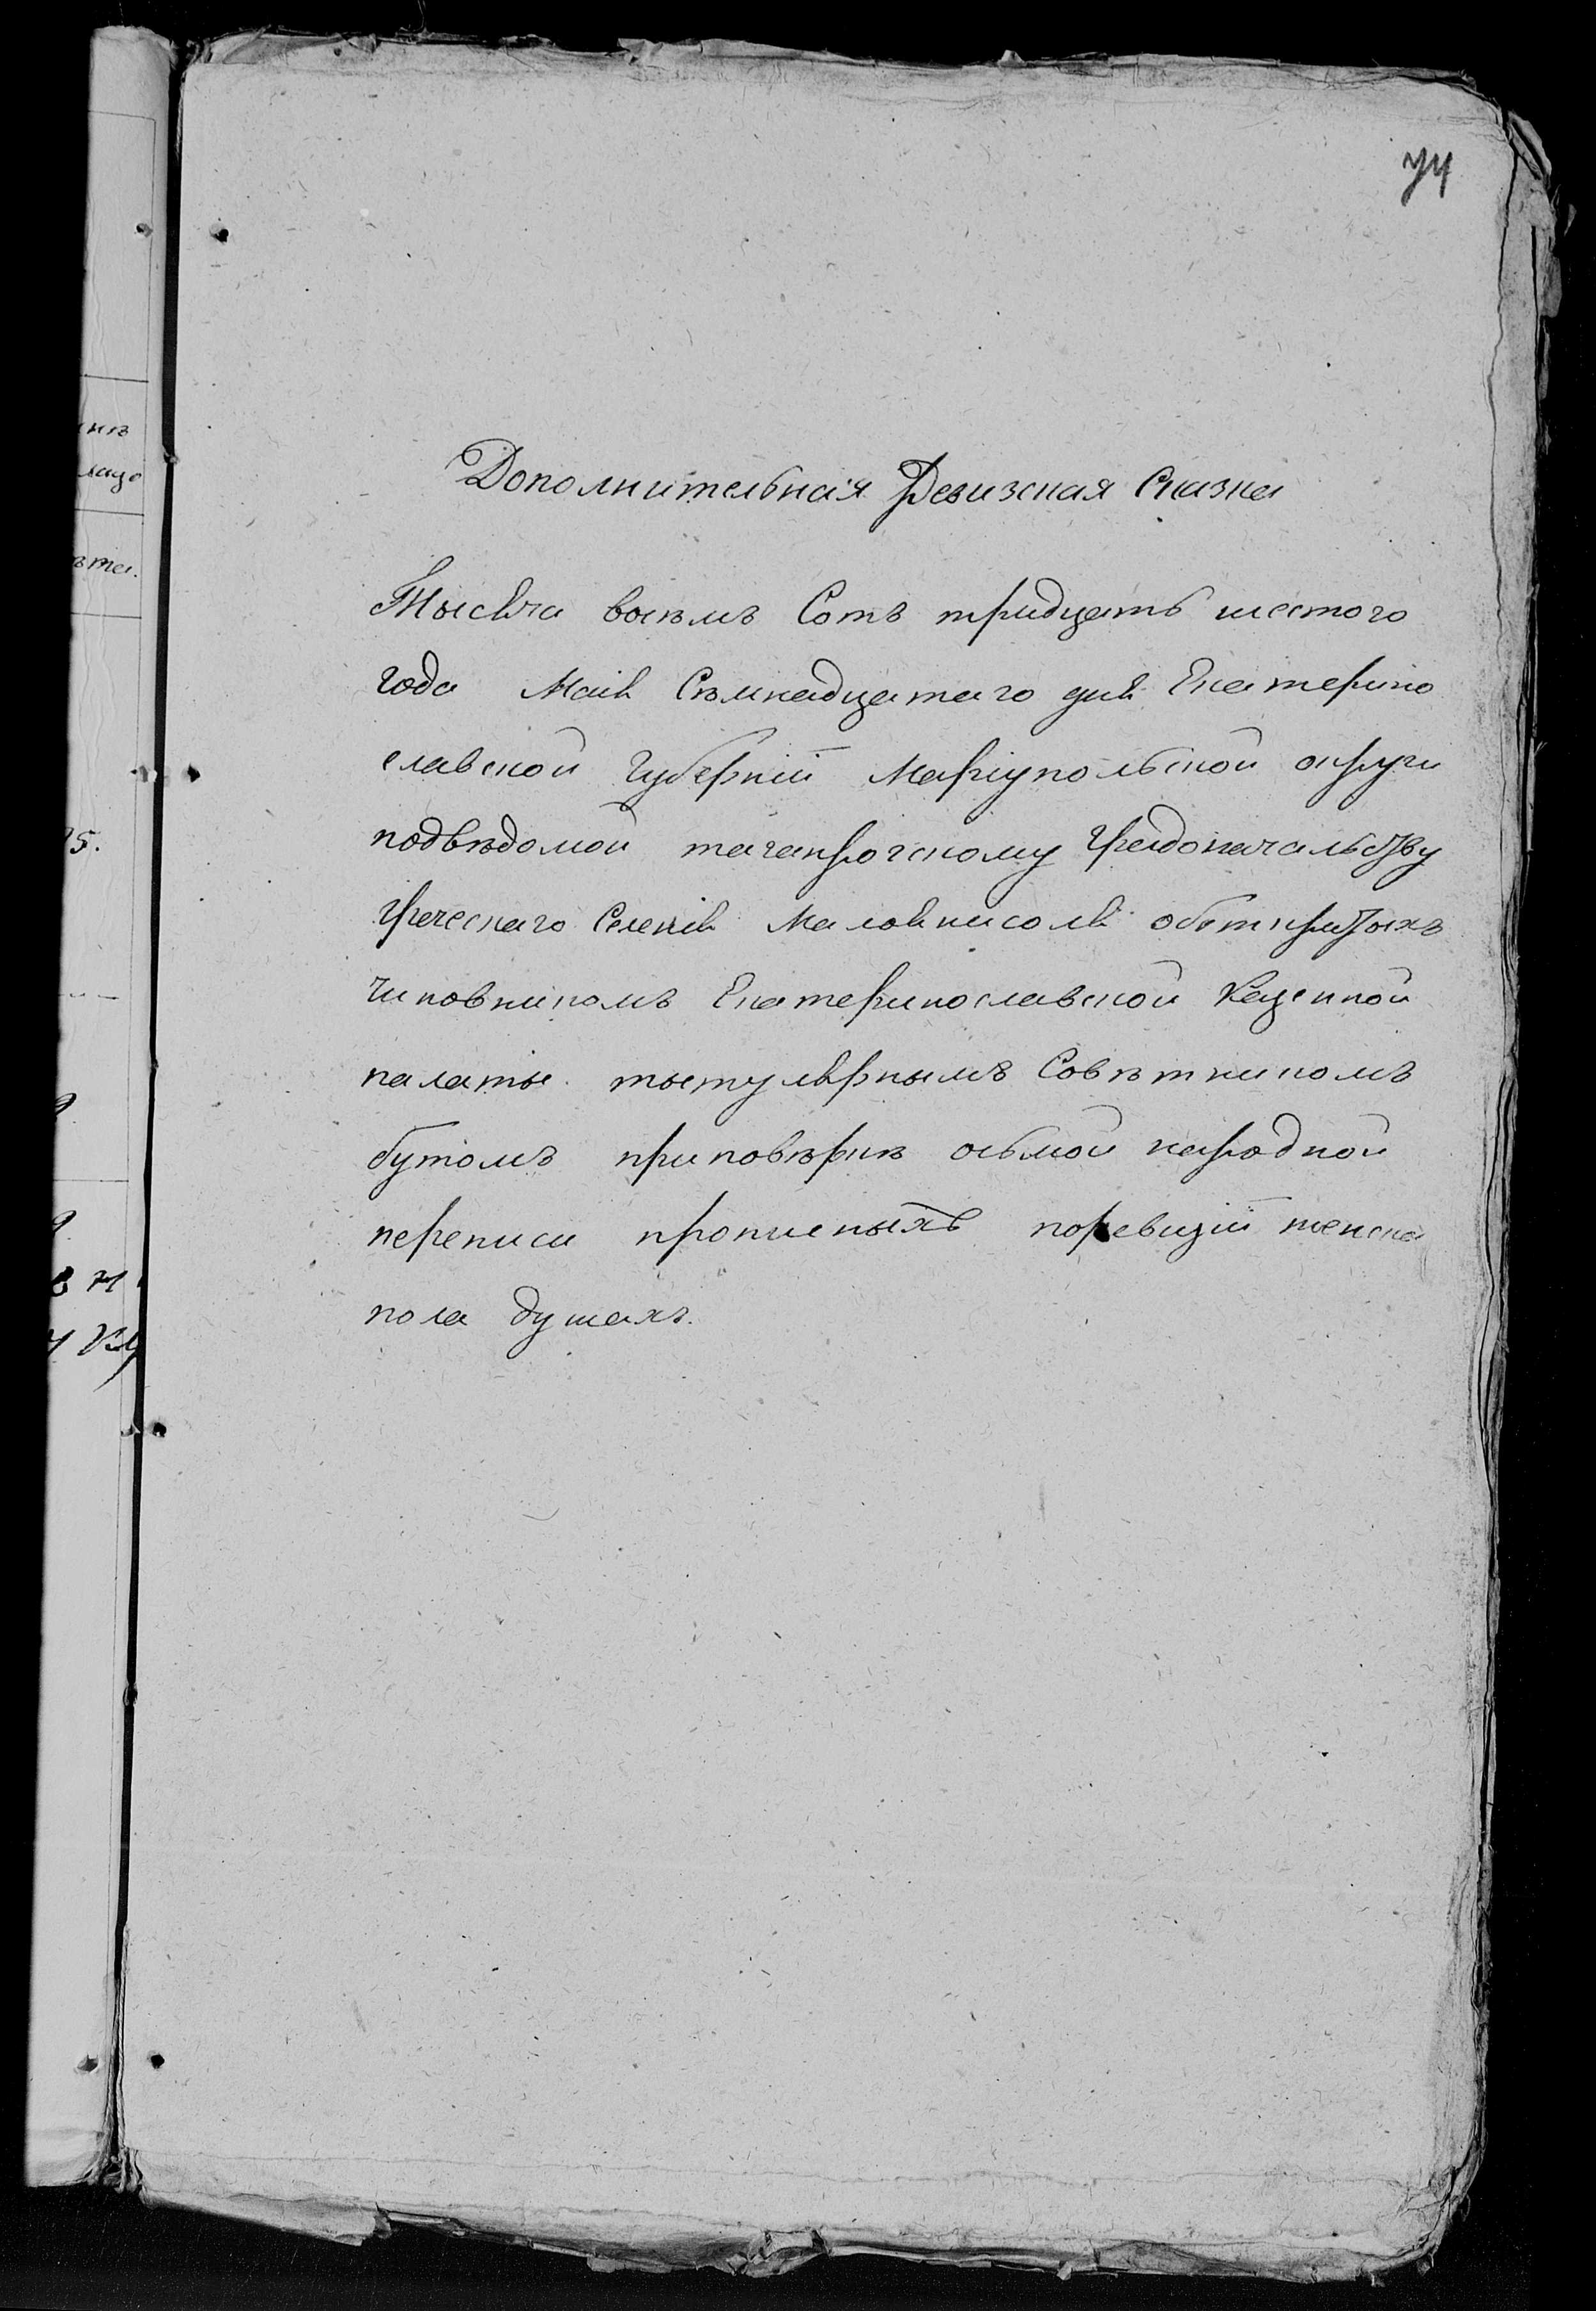 74
Дополнительная Ревизская Сказка
Тысяча восѣмъ Сотъ тридцать шестого
года Маія Сѣмнадцатаго дня Екатерино
славской Губерніи Маріупольской округи
подвѣдомой таганрогскому Градоначальству
Греческаго Селенія Малоянисоля оботкрытыхъ
чиновникомъ Екатеринославской Казенной
палаты тытулярнымъ Совѣтникомъ
бутомъ приповѣркѣ осьмой народной
переписи пропиеныхъ поревизіи женска
пола душахъ.
5.